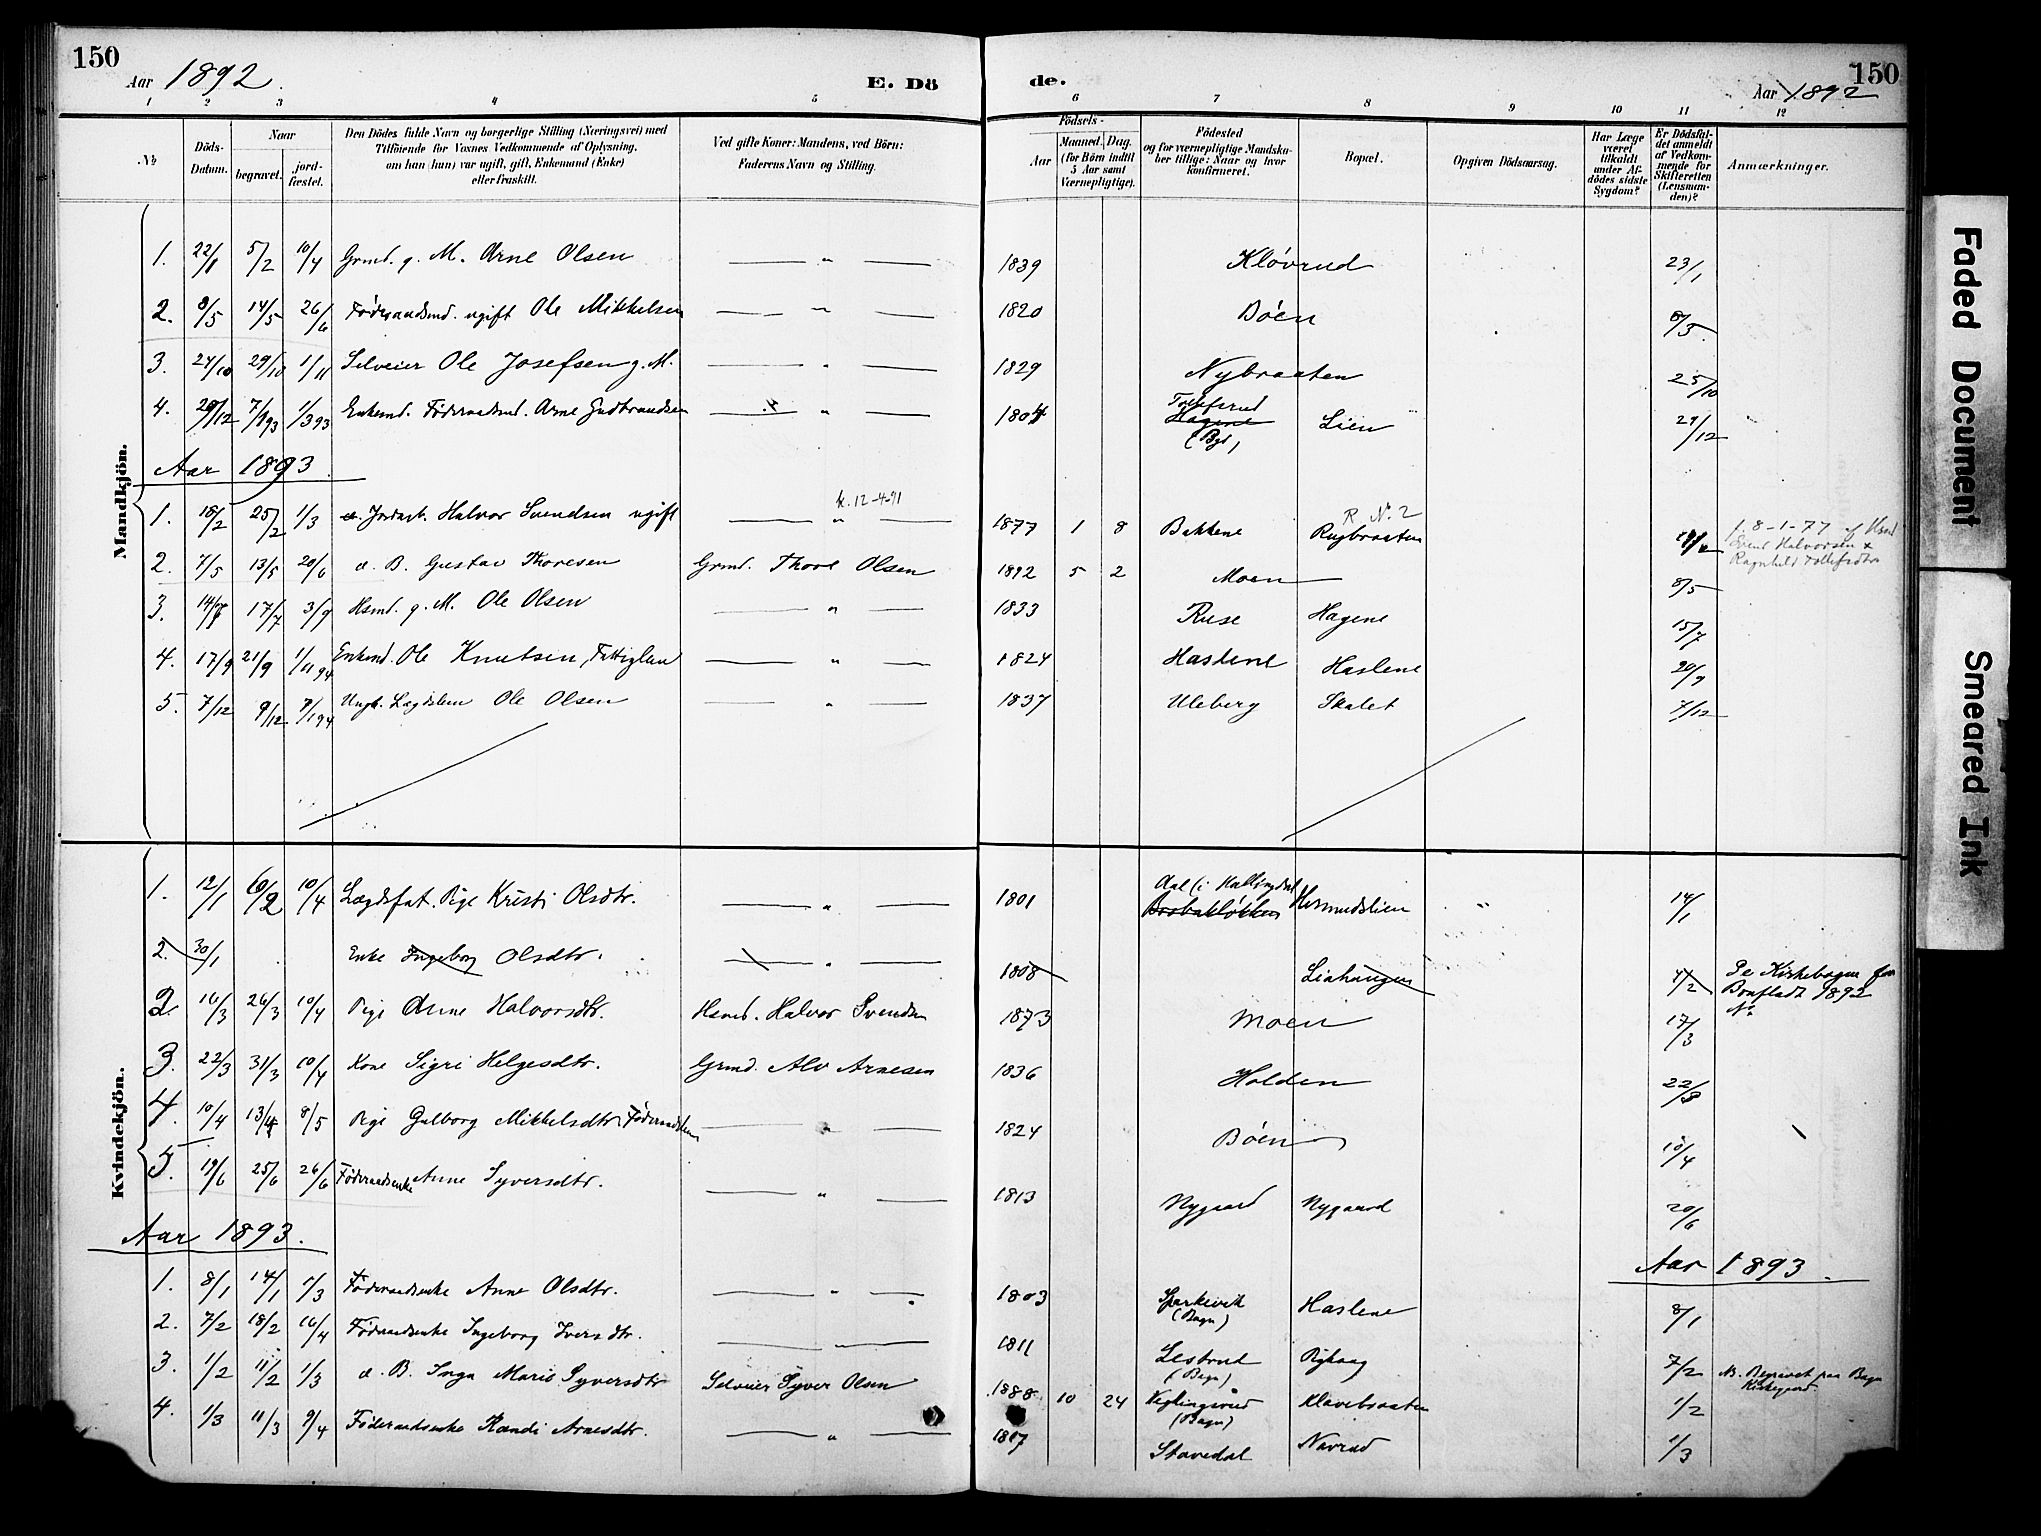 150
Aar 1892.
E. Dö
de.
Aar 1892
150
1 2 3 4 5 6 7 8 9 10 11 12
№
Döds-Datum.
Naar
begravet.
jord-fæstet.
Den Dödes fulde Navn og borgerlige Stilling (Næringsvei) med
Tilföiende for Voxnes Vedkommende af Oplysning,
om han (hun) var ugift, gift, Enkemand (Enke)
eller fraskilt.
Ved gifte Koner: Mandens, ved Börn:
Faderens Navn og Stilling.
Födsels-
Aar
Maaned. Dag.
(for Börn indtil
5 Aar samt
Værnepligtige).
Födested
og for værnepligtige Mandska-
ber tillige: Naar og hvor
konfirmeret.
Bopæl.
Opgiven Dödsaarsag.
Har Læge
været
tilkaldt
under Af-
dödes sidste
Sygdom?
Er Dödsfal-
det anmeldt
af Vedkom-
mende for
Skifteretten
(Lensman-
den)?
Anmærkninger.
Mandkjön.
1. 22/1 5/2 10/4 Grmd. g. M. Arne Olsen — " — 1839 Kløvrud 23/1
2. 8/5 14/5 26/6 Føderaadsmd. ugift Ole Mikkelsen — " — 1820 Bøen 8/5
3. 24/10 29/10 1/11 Selveier Ole Josefsen g. M. — " — 1829 Nybraaten 25/10
4. 29/12 7/1 93 1/3 93 Enkemd. Føderaadsmd. Arne Gudbrandsen — " — 1804 Tollefsrud Hagene (Bgd) Lien 29/12
Aar 1893.
k. 12-4-91
1. 18/2 25/2 1/3 Halvor Svendsen ugift — " — 1877 1 8 Bakkene R № 2 Rugbraaten f. 8-1-77 af Hsmd
Svend Halvorsen &
Ragnhild Tollefsdtr
2. 7/5 13/5 20/6 d. B. Gustav Thoresen Grmd. Thore Olsen 1892 5 2 Moen — 8/5
3. 14/7 17/7 3/9 Hsmd. g. M. Ole Olsen — " — 1833 Ruse Hagene 15/7
4. 17/9 21/9 1/11 94 Enkemd. Ole Knutsen, Fattiglem — " — 1824 Haslene Haslene 20/9
5. 7/12 9/12 7/1 94 Ungk. Lægdslem Ole Olsen — " — 1837 Uleberg Skalet 7/12
Kvindekjön.
1. 12/1 6/2 10/4 Lægdsfat. Pige Kristi Olsdtr. — " — 1801 Aal (i Hallingdal Brobakløkken Hermundslien " 14/1
2. 30/1 Enke Ingeborg Olsdtr. — " — 1808 Liahaugen 4/2 Se Kirkebogen for
Brufladt 1892
№
2. 16/3 26/3 10/4 Pige Anne Halvorsdtr. Hsmd. Halvor Svendsen 1873 Moen 17/3
3. 22/3 31/3 10/4 Kone Sigri Helgesdtr. Grmd. Alv Arnesen 1836 Holden 22/3
4. 10/4 13/4 8/5 Pige Gulborg Mikkelsdtr. Føderaadslem — " — 1824 Bøen 10/4
5. 19/6 25/6 26/6 Føderaadsenke Anne Syversdtr. — " — 1813 Nygaard Nygaard 20/6
Aar 1893.
Aar 1893.
1. 8/1 14/1 1/3 Føderaadsenke Anne Olsdtr. — " — 1803 Sparkevik (Bagn) Haslene 8/1
2. 7/2 18/2 16/4 Føderaadsenke Ingeborg Iversdtr. — " — 1811 Lestrud (Bagn) 7/2
3. 1/2 11/2 1/3 d. B. Inga Marie Syversdtr Selveier Syver Olsen 1888 10 24 (Bagn) Klavebraaten 1/2 NB. Begravet paa Bagn
Kirkegaard.
4. 1/3 11/3 9/4 Føderaadsenke Randi Arnesdtr. — " — 1817 Stavedal Navrud 1/3
Faded Document
Smeared Ink